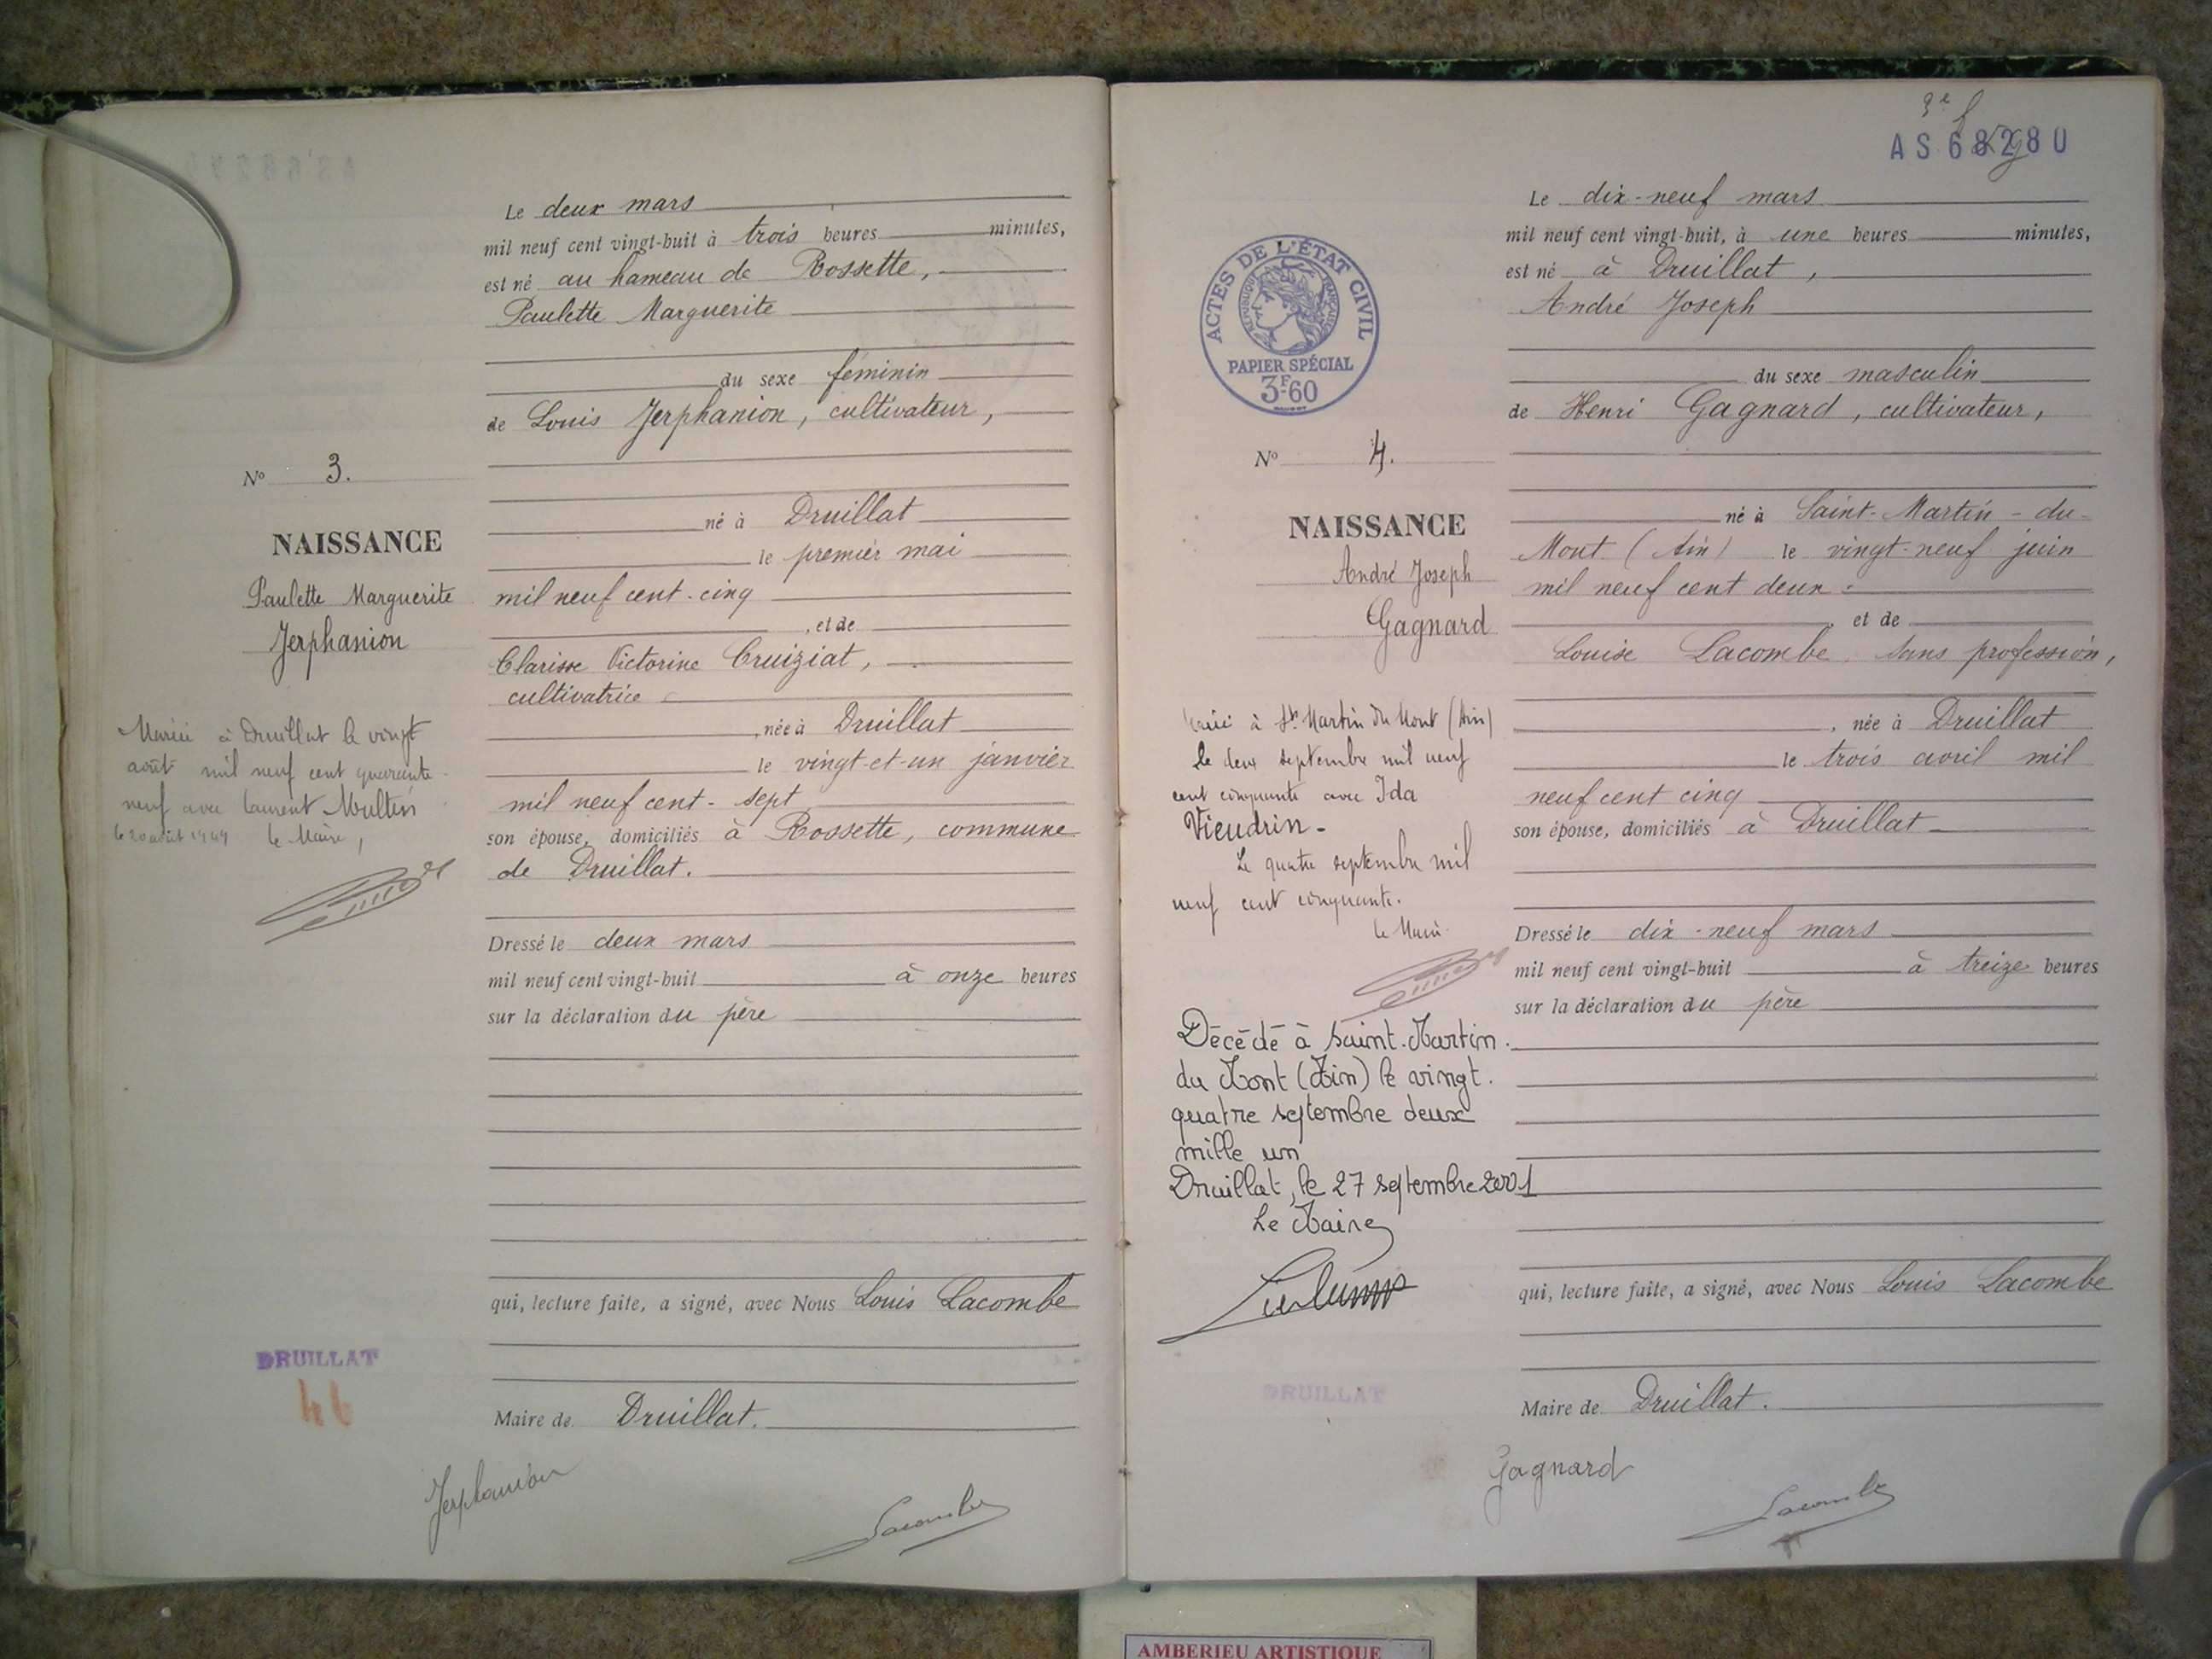 Le deux mars
mil neuf cent vingt-huit à trois heures minutes,
est né au hameau de Rossette,
Paulette Marguerite
du sexe féminin
de Louis Jerphanion, cultivateur,
né à Druillat
le premier mai
mil neuf cent-cinq
, et de
Clarisse Victorine Cruiziat,
cultivatrice
, née à Druillat
le vingt-et-un janvier
mil neuf cent-sept
son épouse, domiciliés à Rossette, commune
de Druillat.
Dressé le deux mars
mil neuf cent vingt-huit à onze heures
sur la déclaration du père
qui, lecture faite, a signé, avec Nous Louis Lacombe
Maire de Druillat.
Jerphanion
Lacombe
No 3.
NAISSANCE
Paulette Marguerite
Jerphanion
Mariée à Druillat le vingt
août mil neuf cent quarante
neuf avec Laurent
le 20 août 1949 le Maire,
DRUILLAT
46
AS 68280
Le dix-neuf mars
mil neuf cent vingt-huit, à une heures minutes,
est né à Druillat,
André Joseph
du sexe masculin
de Henri Gagnard, cultivateur,
né à Saint-Martin-du-
Mont (Ain) le vingt-neuf juin
mil neuf cent deux
, et de
Louise Lacombe, sans profession,
, née à Druillat
le trois avril mil
neuf cent cinq
son épouse, domiciliés à Druillat
Dressé le dix-neuf mars
mil neuf cent vingt-huit à treize heures
sur la déclaration du père
qui, lecture faite, a signé, avec Nous Louis Lacombe
Maire de Druillat.
Gagnard
Lacombe
ACTES DE L'ÉTAT CIVIL
RÉPUBLIQUE FRANÇAISE
PAPIER SPÉCIAL
3F60
No 4.
NAISSANCE
André Joseph
Gagnard
Marié à St Martin du Mont (Ain)
le deux septembre mil neuf
cent cinquante avec Ida
Vieudrin-
Le quatre septembre mil
neuf cent cinquante.
le Maire
Décédé à Saint-Martin-
du Mont (Ain) le vingt-
quatre septembre deux
mille un
Druillat, le 27 septembre 2001
Le Maire
DRUILLAT
AMBERIEU ARTISTIQUE